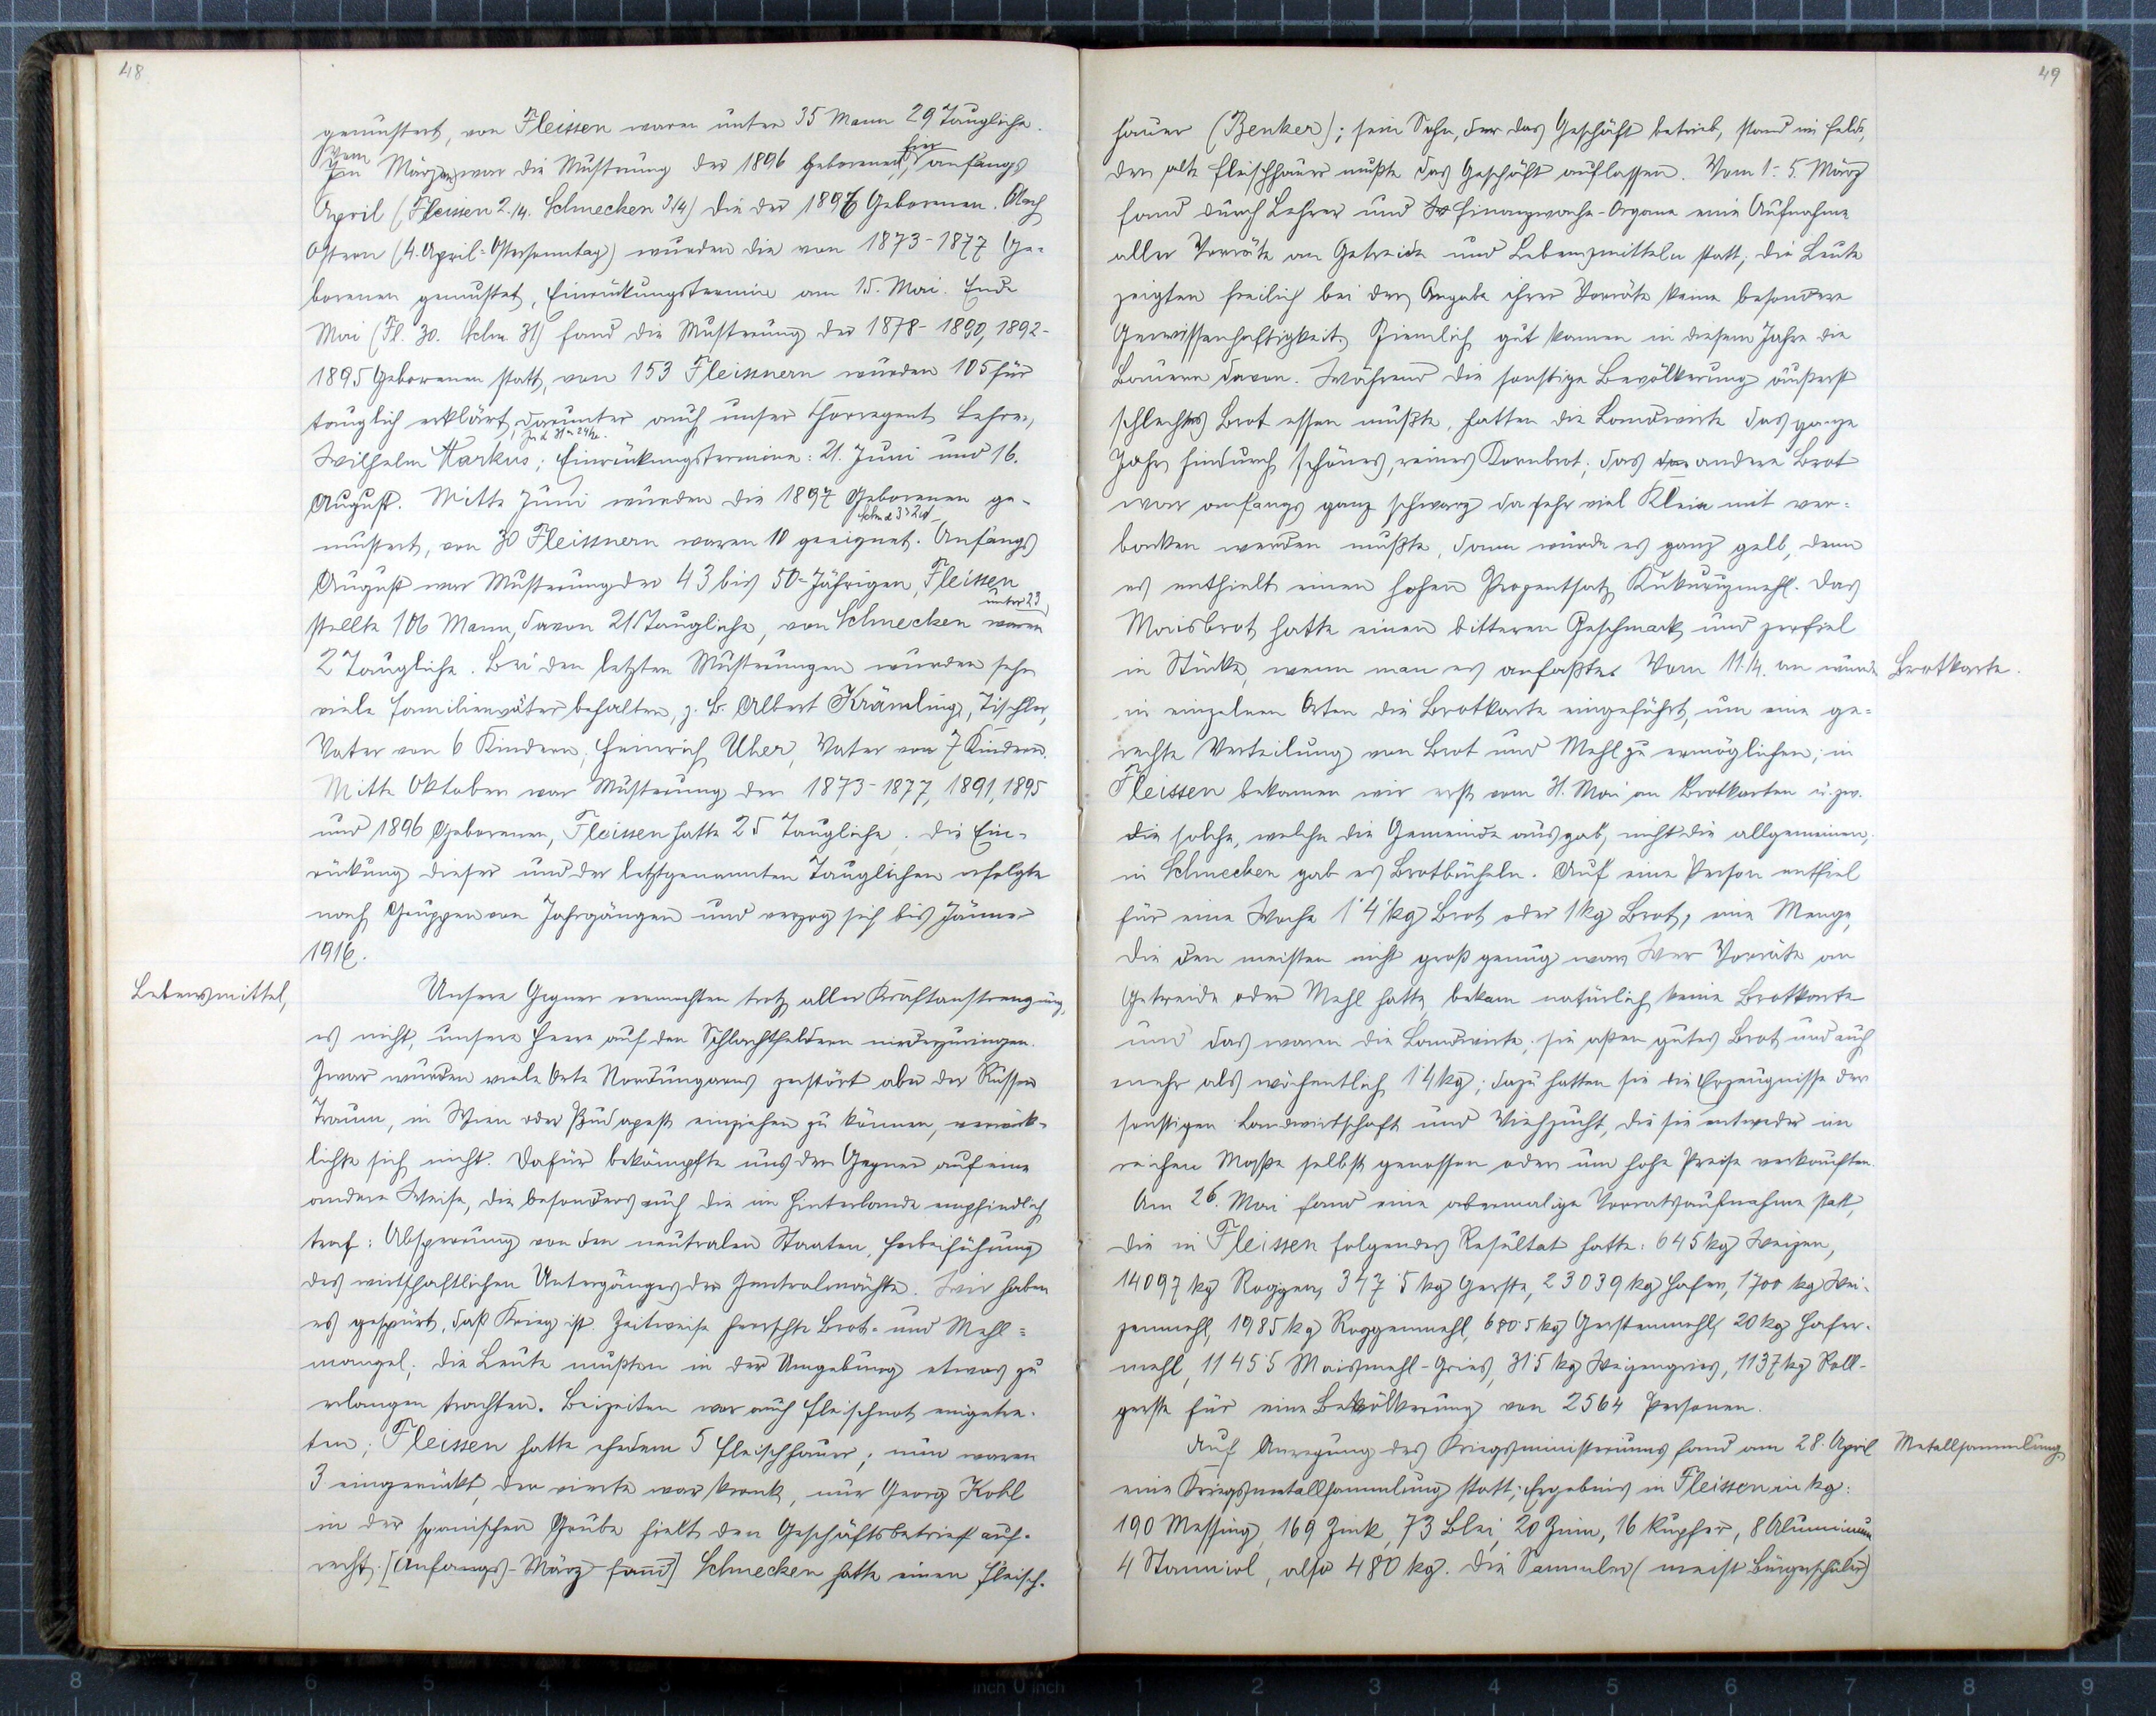 48
gemustert, von Fleissen waren unter 35 Mann 29 Taugliche.
Vom
hier
Im März war die Musterung der 1896 Geborenen, anfangs
April (Fleissen 2./4. Schnecken 3/4) die der 1897 Geborenen. Nach
Ostern (4. April-Ostersonntag) wurden die von 1873-1877 Ge-
borenen gemustet, Einrückungstermin am 15. Mai. Ende
Mai (Fl. 30. Schn. 31) fand die Musterung der 1878-1890, 1892-
1895 Geborenen statt, von 153 Fleissnern wurden 105 für
tauglich erklärt, darunter auch unser Chorregent Lehrer,
Wilhelm Markus; Einrückungstermine: 21. Juni und 16.
August. Mitte Juni wurden die 1897 Geborenen ge-
mustert, von 30 Fleissnern waren 10 geeignet. Anfangs
August war Musterung der 43 bis 50-Jährigen, Fleissen
unter 23
stellte 106 Mann, davon 21 Taugliche, von Schnecken waren
2 Taugliche. Bei den letzten Musterungen wurden sehr
viele Familienväter behalten, z. B. Albert Krämling, Tischler,
Vater von 6 Kindern; Heinrich Uher, Vater von 7 Kindern.
Mitte Oktober war Musterung der 1873-1877, 1891, 1895
und 1896 Geborenen, Fleissen hatte 25 Taugliche. Die Ein-
rückung dieser und der letztgenannten Tauglichen erfolgte
nach Gruppen von Jahrgängen und verzog sich bis Jänner
1916.
Lebensmittel,
Unsere Gegner vermochten trotz aller Kraftanstrengung,
es nicht, unsere Heere auf den Schlachtfeldern niederzuringen.
Zwar wurden viele Orte Nordungarns zerstört aber der Russen
Traum, in Wien oder Budapest einziehen zu können, verwirk-
lichte sich nicht. Dafür bekämpfte uns der Gegner auf eine
andere Weise, die besonders auch die im Hinterlande empfindlich
traf: Absperrung von den neutralen Staaten, Herbeiführung
des wirtschaftlichen Unterganges der Zentralmächte. Wir haben
es gespürt, daß Krieg ist. Zeitweise herrschte Brot- und Mehl=
mangel; die Leute mußten in der Umgebung etwas zu
erlangen trachten. Beizeiten war auch Fleischnot eingetre-
ten; Fleissen hatte ehedem 5 Fleischhauer; nun waren
3 eingerückt, der vierte war krank, nur Georg Kohl
in der spanischen Grube hielt den Geschäftsbetrieb auf-
recht. [Anfangs-März fand] Schnecken hatte einen Fleisch-
49
hauer (Benker); sein Sohn, der das Geschäft betrieb, stand im Felde,
der alte Fleischhauer mußte das Geschäft auflassen. Vom 1.-5. März
fand durch Lehrer und Finanzwache-Organe eine Aufnahme
aller Vorräte an Getreide und Lebensmitteln statt; die Leute
zeigten freilich bei der Angabe ihrer Vorräte keine besondere
Gewissenhaftigkeit. Ziemlich gut kamen in diesem Jahre die
Bauern davon. Während die sonstige Bevölkerung äußerst
schlechtes Brot essen mußte, hatten die Landwirte das ganze
Jahr hindurch schönes, reines Kornbrot; das andere Brot
war anfangs ganz schwarz da sehr viel Kleie mit ver=
backen werden mußte, dann wurde es ganz gelb, denn
es enthielt einen hohen Prozentsatz Kukuruzmehl. Das
Maisbrot hatte einen bitteren Geschmack und zerfiel
in Stücke, wenn man es anfaßte. Vom 11./4. an wurde
Brotkarte.
in einzelnen Orten die Brotkarte eingeführt, um eine ge=
rechte Verteilung von Brot und Mehl zu ermöglichen; in
Fleissen bekamen wir erst vom 31. Mai an Brotkarten u. zw.
die solche, welche die Gemeinde ausgab, nicht die allgemeinen;
in Schnecken gab es Brotbücheln. Auf eine Person entfiel
für eine Woche 1'4 kg Brot oder 1 kg Brot, eine Menge,
die den meisten nicht groß genug war. Wer Vorräte an
Getreide oder Mehl hatte, bekam natürlich keine Brotkarte
und das waren die Landwirte; sie aßen gutes Brot und auch
mehr als wöchentlich 1'4 kg; dazu hatten sie die Erzeugnisse der
sonstigen Landwirtschaft und Viehzucht, die sie entweder im
reichen Maße selbst genossen oder um hohe Preise verkauften.
Am 26. Mai fand eine abermalige Vorratsaufnahme statt,
die in Fleissen folgendes Resultat hatte: 645 kg Weizen,
14097 kg Roggen, 347'5 kg Gerste, 23039 kg Hafer, 1700 kg Wei-
zenmehl, 1985 kg Roggenmehl, 680'5 kg Gerstenmehl, 20 kg Hafer-
mehl, 1145'5 Maismehl-Gries, 31'5 kg Weizengries, 1137 kg Roll-
gerste für eine Bevölkerung von 2564 Personen.
Auf Anregung des Kriegsministeriums fand am 28. April
Metallsammlung
eine Kriegsmetallsammlung statt; Ergebnis in Fleissen in kg:
190 Messing, 169 Zink, 73 Blei, 20 Zinn, 16 Kupfer, 8 Aluminium
4 Stanniol, also 480 kg. Die Sammler (meist Bürgerschüler)
8 7 6 5 4 3 2 1 inch 0 inch 1 2 3 4 5 6 7 8 9